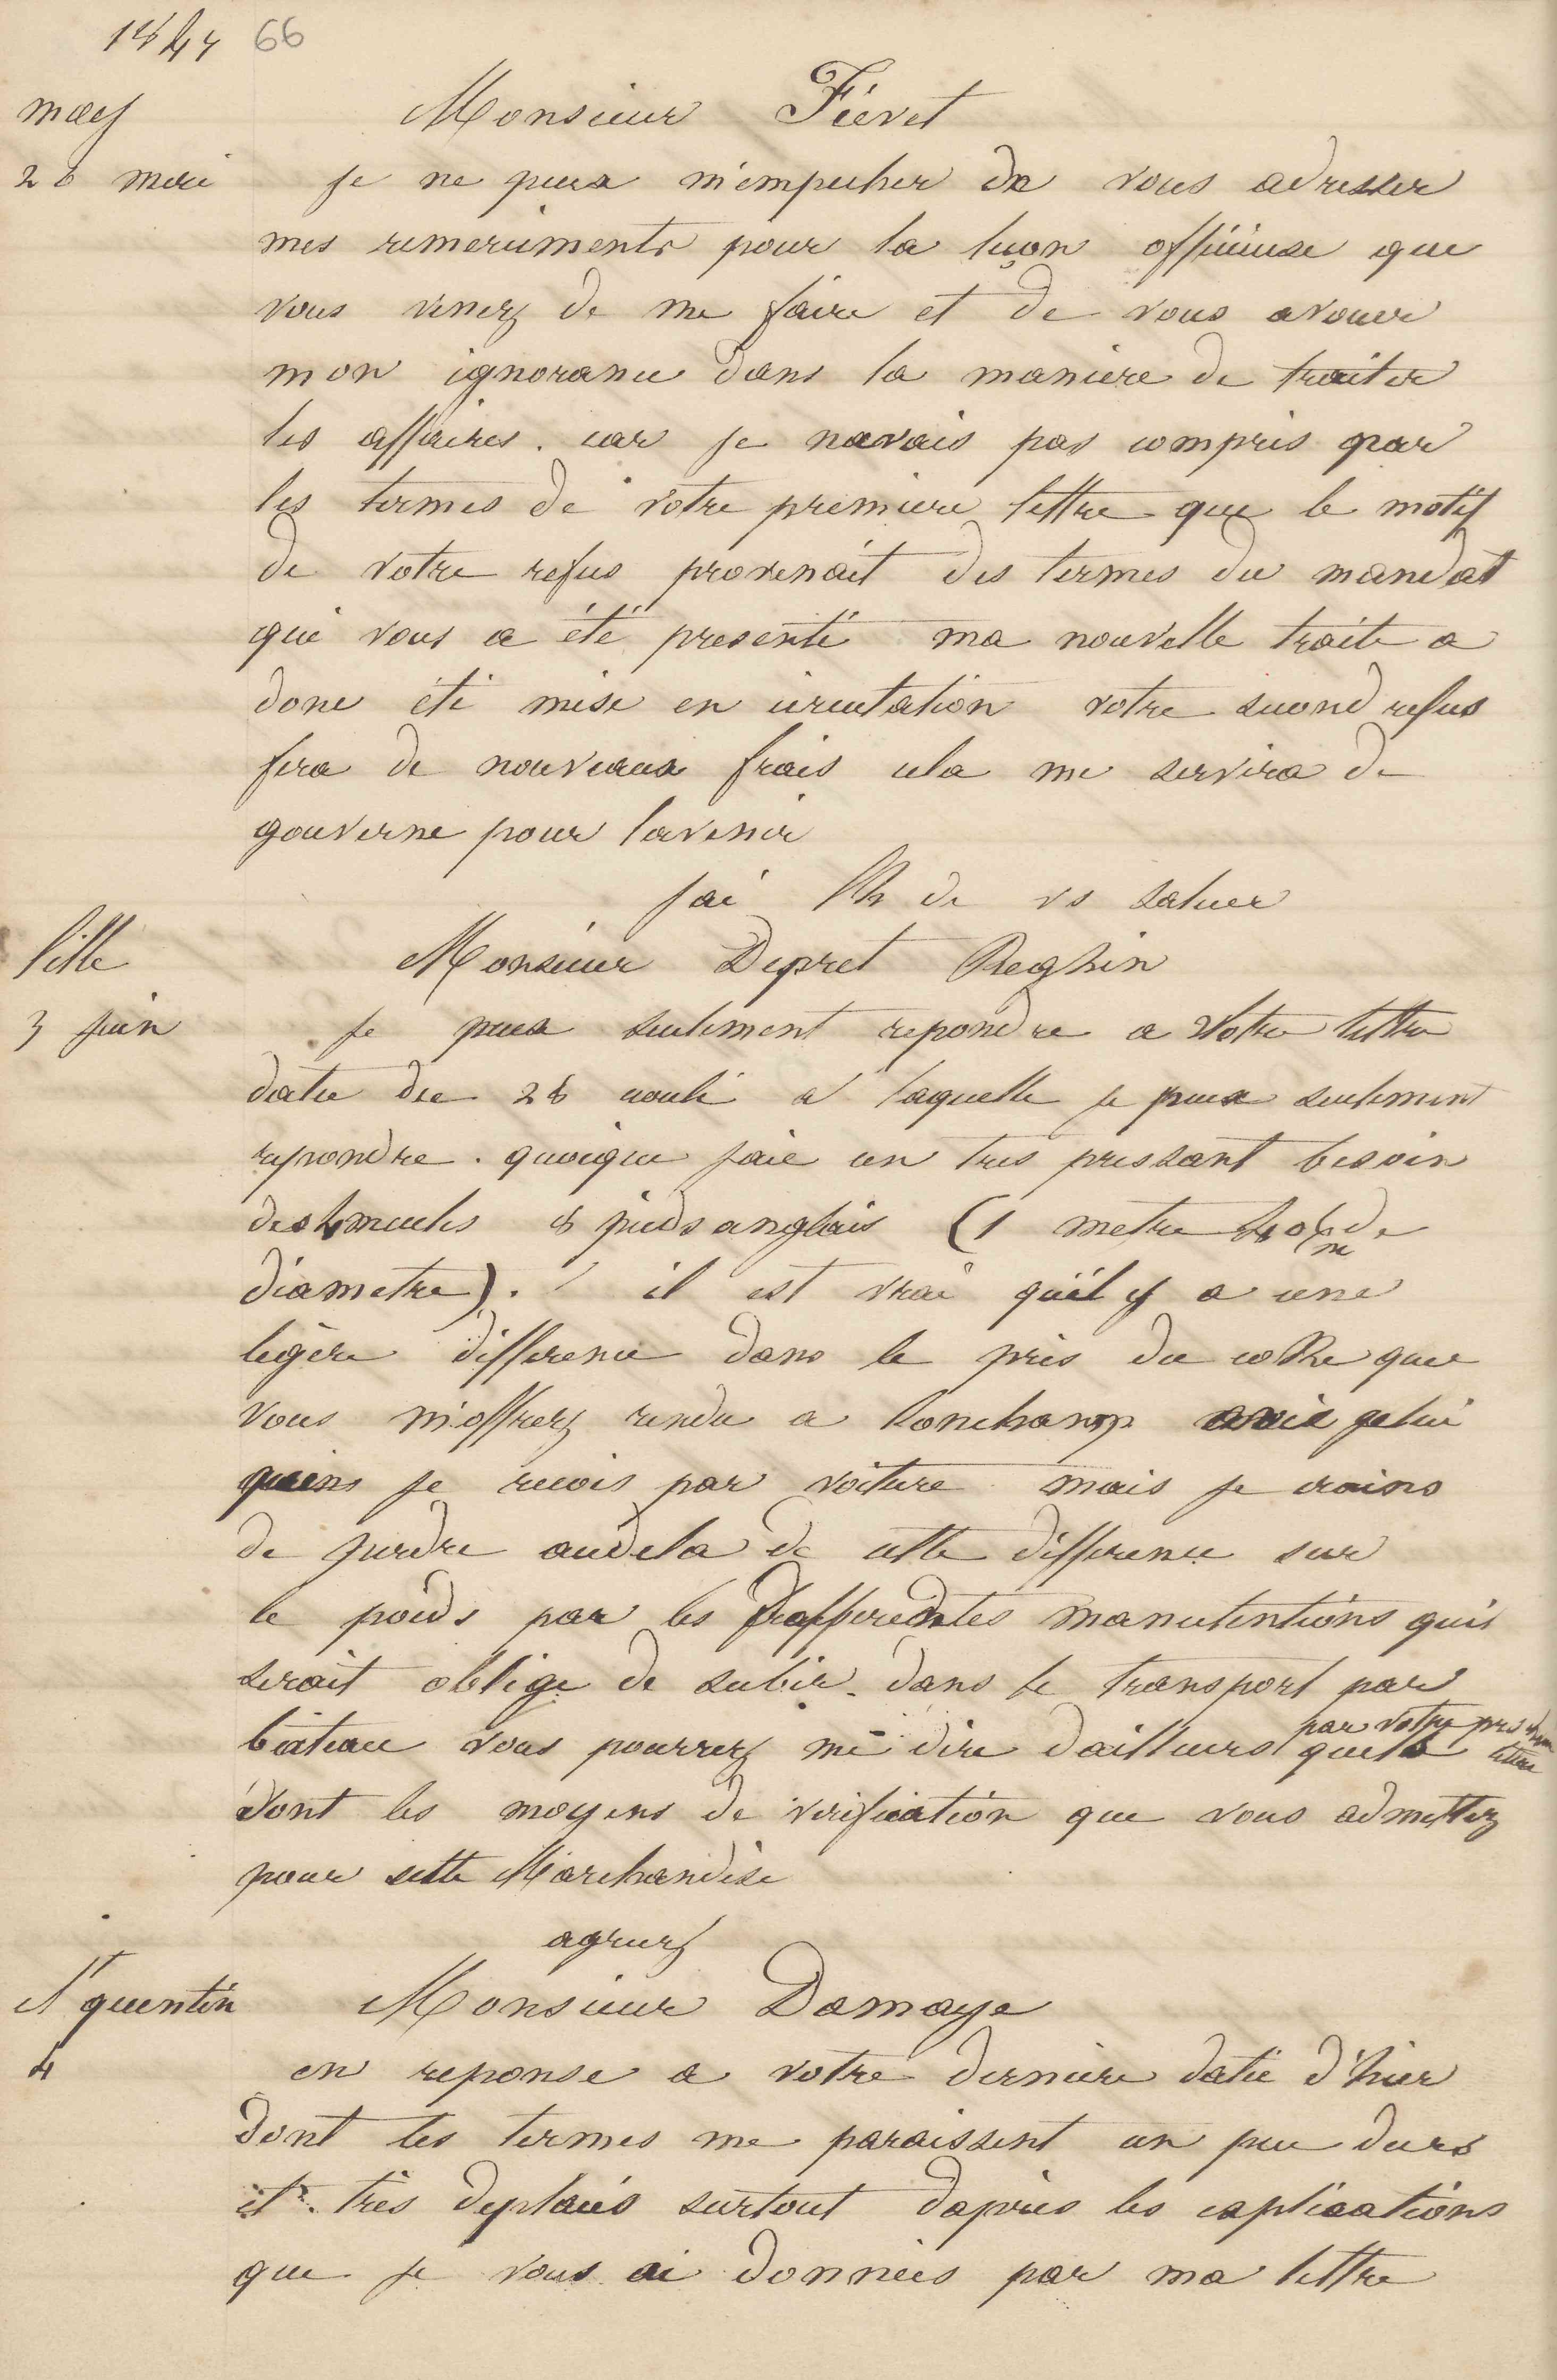 1847 66
macq Monsieur Fiévet
28 mai je ne peux m'empecher de vous adresser
mes remerciments pour la leçon officieuse que
vous venez de me faire et de vous avouer
mon ignorance dans la maniere de traiter
les affaires. car je navais pas compris par
les termes de votre premiere lettre que le motif
de votre refus provenait des termes du mandat
qui vous a été presenté ma nouvelle traite a
donc été mise en circulation votre second refus
fera de nouveaux frais cela me servira de
gouverne pour lavenir
jai lh de vs saluer
lille Monsieur Depret Reghin
3 juin je peux seulement repondre a votre lettre
datée du 28 coulé a laquelle je peux seulement
repondre. quoique jaie un tres pressant besoin
des 4 meules 8 pieds anglais (1 metre 40 de
diametre). il est vrai qu'il y a une
legère difference dans le pris du coke que
vous m'offrez rendu a lonchamp avec celui
que je recois par voiture mais je crains
de perdre audela de cette difference sur
le poids par les differentes manutentions quil
serait oblige de subir dans le transport par
bateau vous pourrez me dire dailleurs par votre prochaine lettre quels
sont les moyens de verification que vous admettez
pour cette Marchandise
agreez
St quentin Monsieur Damaye
4 en reponse a votre derniere datée d'hier
dont les termes me paraissent un peu durs
et très deplacés surtout dapres les explications
que je vous ai données par ma lettre